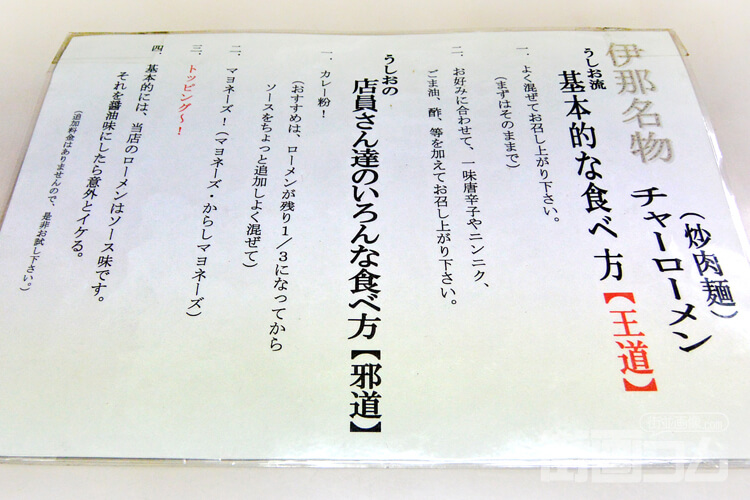 (炒肉麺)
伊那名物 チャーローメン
うしお流
基本的な食べ方【王道】
一、よく混ぜてお召し上がり下さい。
(まずはそのままで)
二、お好みに合わせて、一味唐辛子やニンニク、
ごま油、酢、等を加えてお召し上がり下さい。
うしおの
店員さん達のいろんな食べ方【邪道】
一、カレー粉!
(おすすめは、ローメンが残り1/3になってから
ソースをちょっと追加しよく混ぜて)
二、マヨネーズ!(マヨネーズ・からしマヨネーズ)
三、トッピング~!
四、基本的には、当店のローメンはソース味です。
それを醤油味にしたら意外とイケる。
(追加料金はありませんので、是非お試し下さい。)